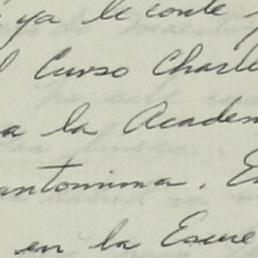 ya le conté
Curso Charle
a la Academ
antomima. E
en la Escue